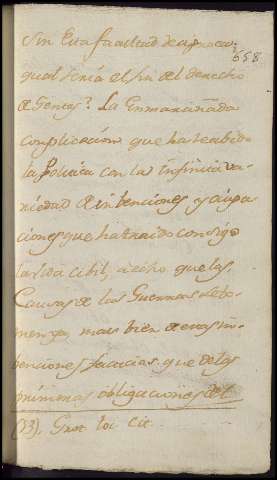 658
Sin Esta facultad de
qual seria el fin del derecho
de Gentes? La Enmarañada
complicacion que ha recibido
la Politica con la infinita va-
riedad de intenciones y ocupa-
ciones que ha traido consigo
la vida cibil, a echo que las
Causas de las Guerras se to-
men ya, mas bien de esas in-
benciones facticias que de las
primeras obligaciones del
(13). Grot. loc. cit.